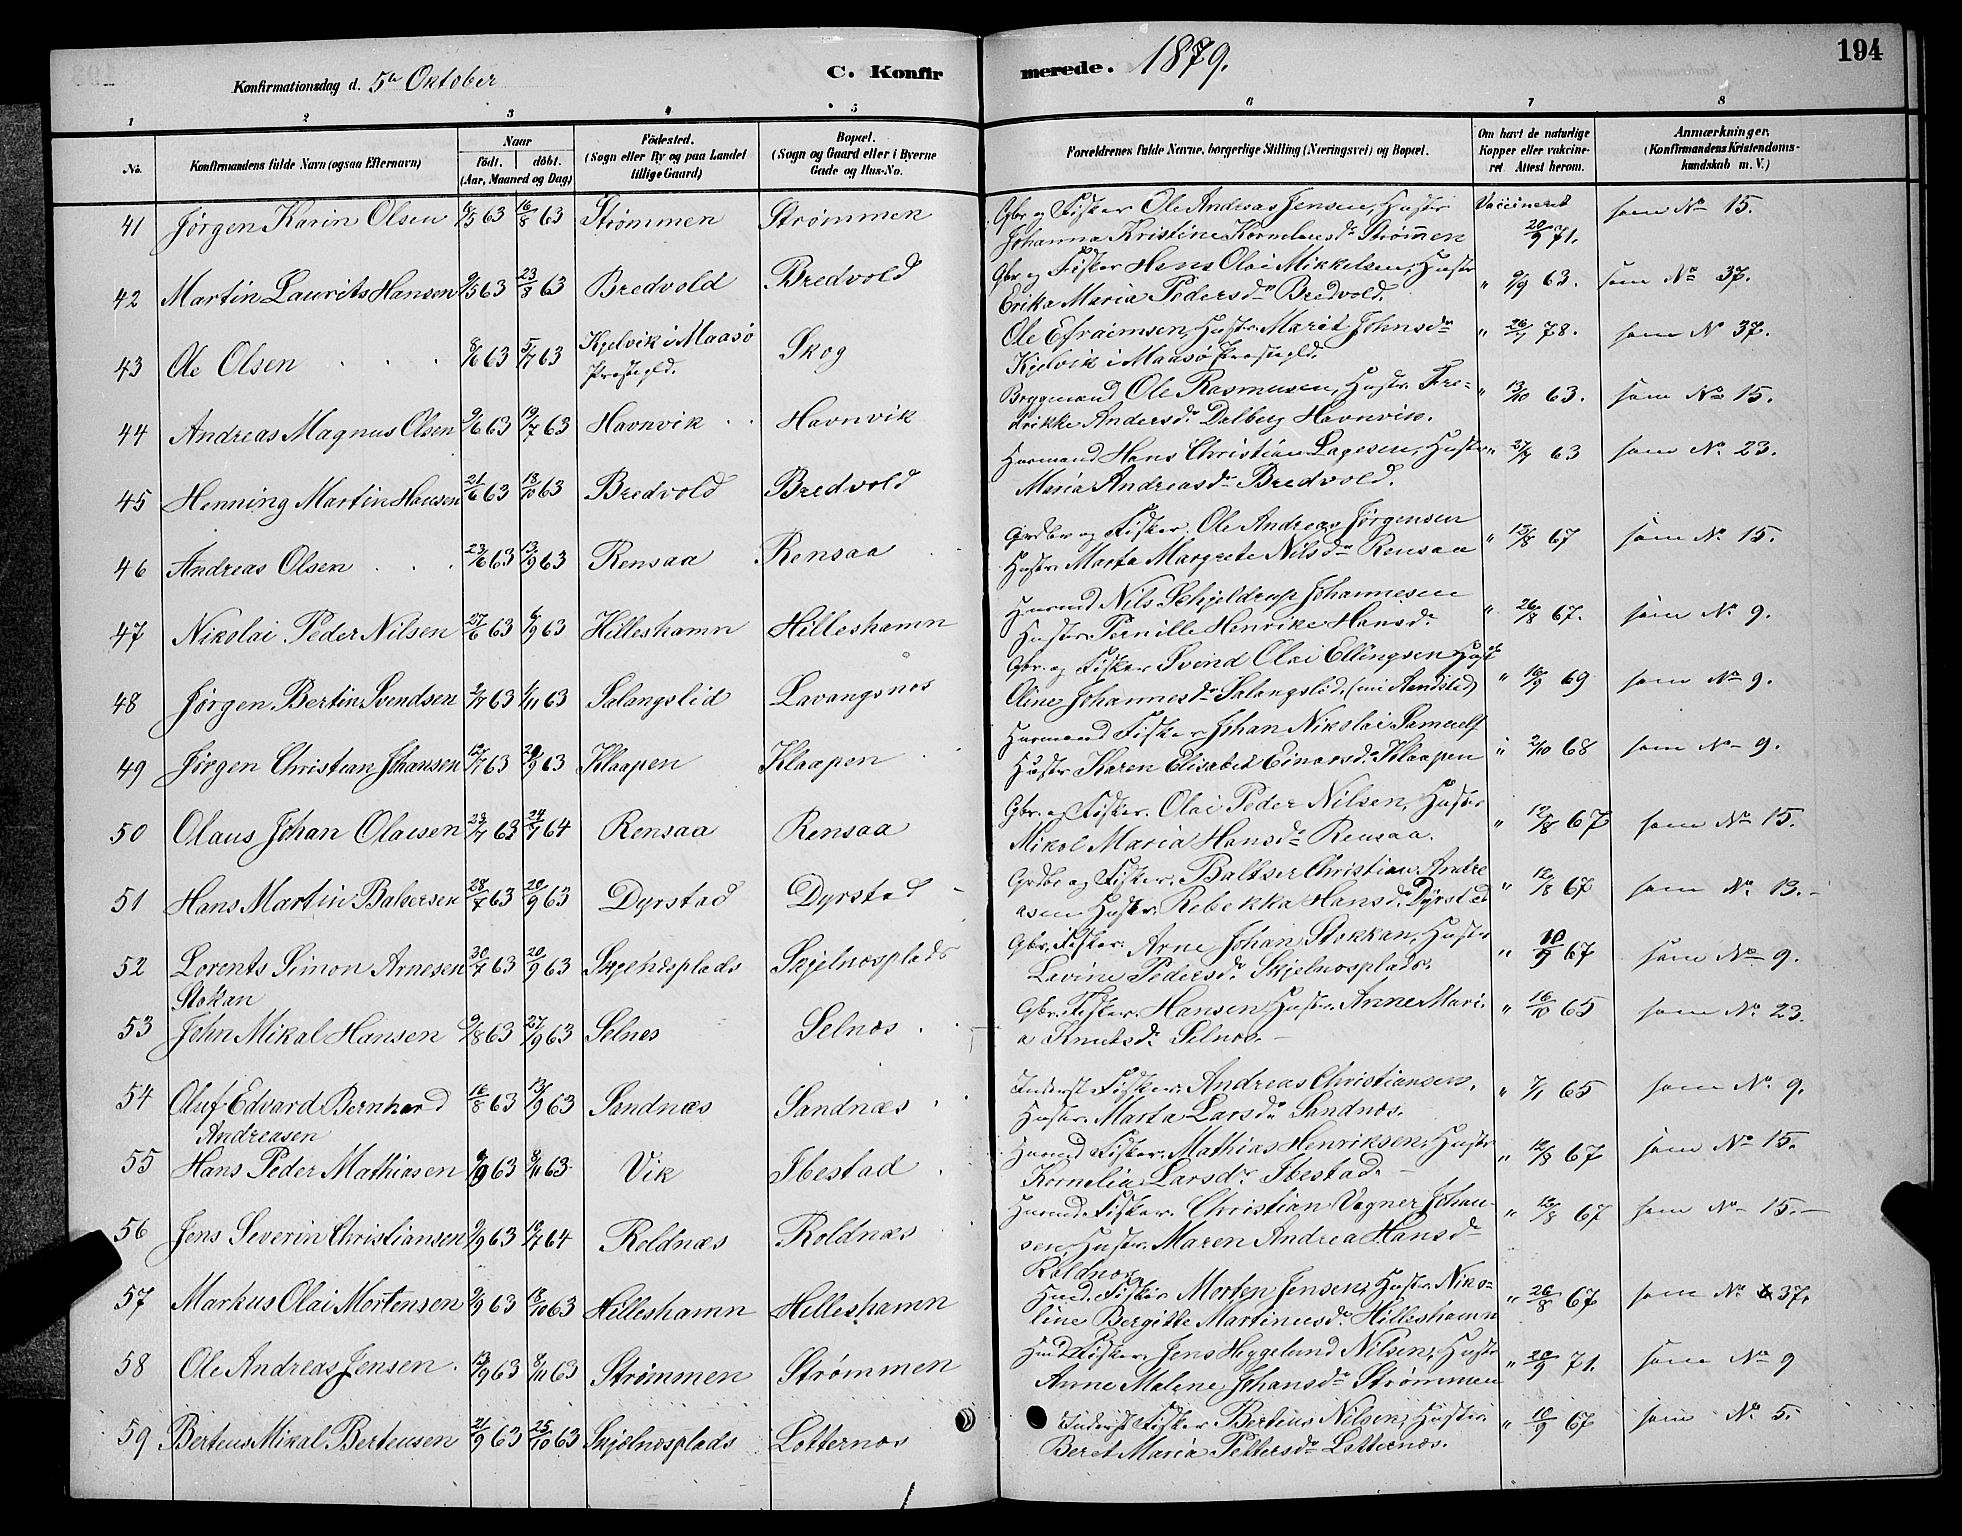 Konfirmationsdag d. 5te Oktober
C. Konfirmerede. 1879.
194
1 2 3 4 5 6 7 8
No.
Konfirmandens fulde Navn (ogsaa Efternavn)
Naar
født. døbt.
(Aar, Maaned og Dag)
Födested.
(Sogn eller By og paa Landet
tillige Gaard)
Bopæl.
(Sogn og Gaard eller i Byerne
Gade og Hus-No.
Forældrenes fulde Navne, borgerlige Stilling (Næringsvei) og Bopæl.
Om havt de naturlige
Kopper eller vakcine-
ret Attest herom.
Anmærkninger,
(Konfirmandens Kristendoms-
kundskab m. V.)
41 Jørgen Karin Olsen 6/5 63 16/8 63 Strømmen Strømmen Gbr og Fisker Ole Andreas Jensen, Hustr Vaccineret som No 15.
Johanna Kristine Korneliusdr Strømmen 20/9 71.
42 Martin Laurits Hansen 9/5 63 23/8 63 Bredvold Bredvold Gbr og Fisker Hans Olai Mikkelsen, Hustr " 9/9 63. som No 37.
Erika Maria Pedersdr Bredvold.
43 Ole Olsen 8/6 63 5/7 63 Kjelvik i Maasø Skog Ole Efraimsen, Hustr. Marit Johnsdr " 26/7 78. som No 37.
Prestegld. Kjelvik i Maasø Prestegld.
44 Andreas Magnus Olsen 9/6 63 19/7 63 Havnvik Havnvik Bryggemand Ole Rasmussen, Hustr. Fre- " 13/10 63. som No 15.
drikke Andersdr Dalberg Havnvik.
45 Henning Martin Hansen 21/6 63 18/10 63 Bredvold Bredvold Husmand Hans Christian Lagesen, Hustr " 27/7 63 som No 23.
Maria Andreasdr Bredvold.
46 Andreas Olsen 23/6 63 13/9 63 Rensaa Rensaa Grdbr og Fisker, Ole Andreas Jørgensen " 13/8 67 som No 15.
Hustr. Marta Margrete Nilsdr Rensaa
47 Nikolai Peder Nilsen 27/6 63 6/9 63 Hilleshamn Hilleshamn Husmd Nils Schjeldrup Johannesen " 26/8 67. som No 9.
Hustr. Pernille Henrike Hansdr
48 Jørgen Bertin Svendsen 2/7 63 1/11 63 Salangslid Lavangsnæs Gbr. og Fisker Svend Olai Ellingsen Hust " 16/9 69 som No 9.
Oline Johannesdr Salangslid, (nu Aandsted)
49 Jørgen Christian Johansen 12/7 63 20/9 63 Klaapen Klaapen Husmand Fisker Johan Nikolai Samuels " 2/10 68 som No 9.
Hustr Karen Elisabet Einarsdr Klaapen
50 Olaus Johan Olaisen 23/7 63 24/7 64 Rensaa Rensaa Gbr. og Fisker. Olai Peder Nilsen, Hustr " 12/8 67 som No 15.
Mikol Maria Hansdr Rensaa.
51 Hans Martin Balsersen 28/7 63 20/9 63 Dyrstad Dyrstad Grdbr og Fisker. Baltser Christian Andre " 12/8 67 som No 13.
asen Hustr. Rebekka Hansdr Dyrstad
52 Lorents Simon Arnesen 30/7 63 20/9 63 Skjelnæsplads Skjelnæsplads Gbr. Fisker. Arne Johan Stokkan, Hustr " 10/9 67 som No 9.
Stokan Lavine Pedersdr Skjelnæsplads.
53 John Mikal Hansen 9/8 63 27/9 63 Selnes Selnæs Gbr. Fisker. Hansen, Hustr. Anne Mari- " 16/10 65 som No 23.
a Knutsdr Selnæs.
54 Oluf Edvard Bernhard 16/8 63 13/9 63 Sandnæs Sandnæs Inderst Fisker. Andreas Christiansen. " 7/1 65 som No 9.
Andreasen Hustr. Marta Larsdr Sandnæs.
55 Hans Peder Mathiasen 6/9 63 8/11 63 Vik Ibestad Husmd Fisker. Mathias Henriksen, Hustr " 12/8 67 som No 15.
Kornelia Larsdr Ibestad.
56 Jens Severin Christiansen 9/9 63 10/7 64 Roldnæs Roldnæs Husmd. Fisker. Christian Vogner Johan- " 12/8 67 som No 15.
sen, Hustr. Maren Andrea Hansdr
Roldnæs
57 Markus Olai Mortensen 9/9 63 18/10 63 Hilleshamn Hilleshamn Husd. Fisker Morten Jensen, Hustr. Niko- " 26/8 67 som No 37.
line Bergitte Martinusdr. Hilleshamn
58 Ole Andreas Jensen. 13/9 63 8/11 63 Strømmen Strømmen Husd Fisker. Jens Heggelund Nilsen, Hustr " 20/9 71. som No 9
Anne Malene Johansdr Strømmen
59 Berteus Mikal Berteusen 21/9 63 25/10 63 Skjelnæsplads Lotternæs Inderst Fisker Berteus Nilsen, Hustr. " 10/9 67 som No 5.
Beret Maria Pettersdr Lotternæs.